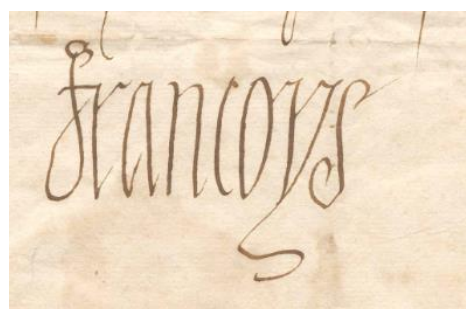 françoys